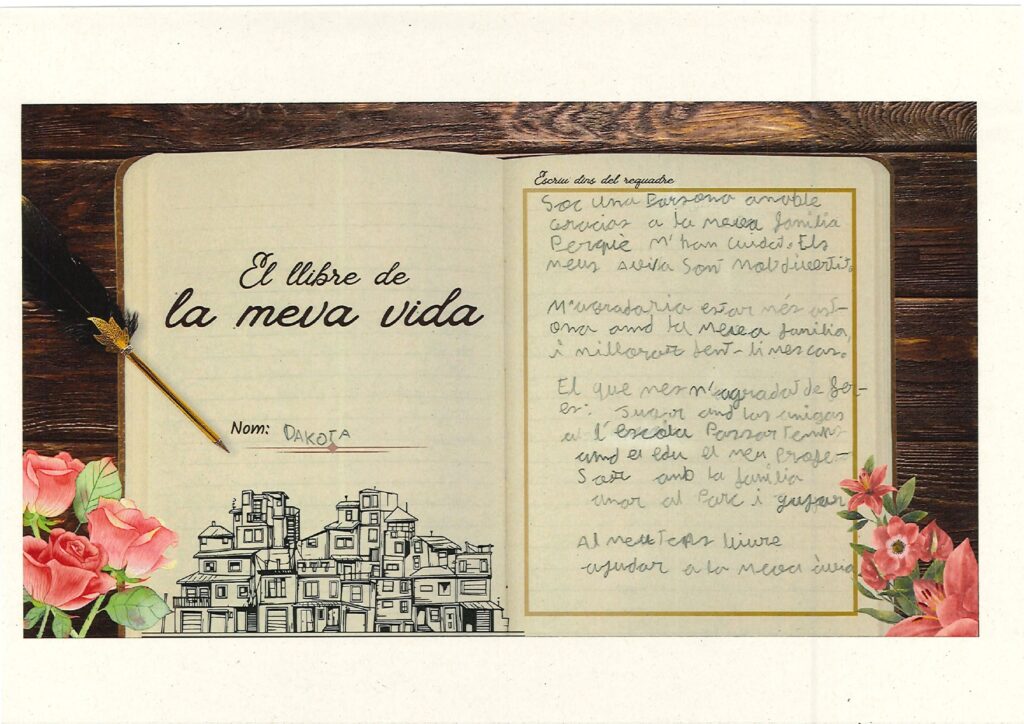 El llibre de
la meva vida
Nom: DAKOTA
Escriu dins del requadre
Soc una Persona amable
Gracias a la meva familia
Perquè M'han cuidat. Els
meus avila Sont Molt divertit.
M'agradaria estar més est-
ona amb la meva familia,
i millorar fent-li mes cas.
El que mes m'agradat de fer-
er: Jugar amb las amigas
al l'escola Passar temps
amb el edu el meu profe-
Sor amb la familia
anar al Parc i
Al meu temps lliure
ajudar a la meva àvia